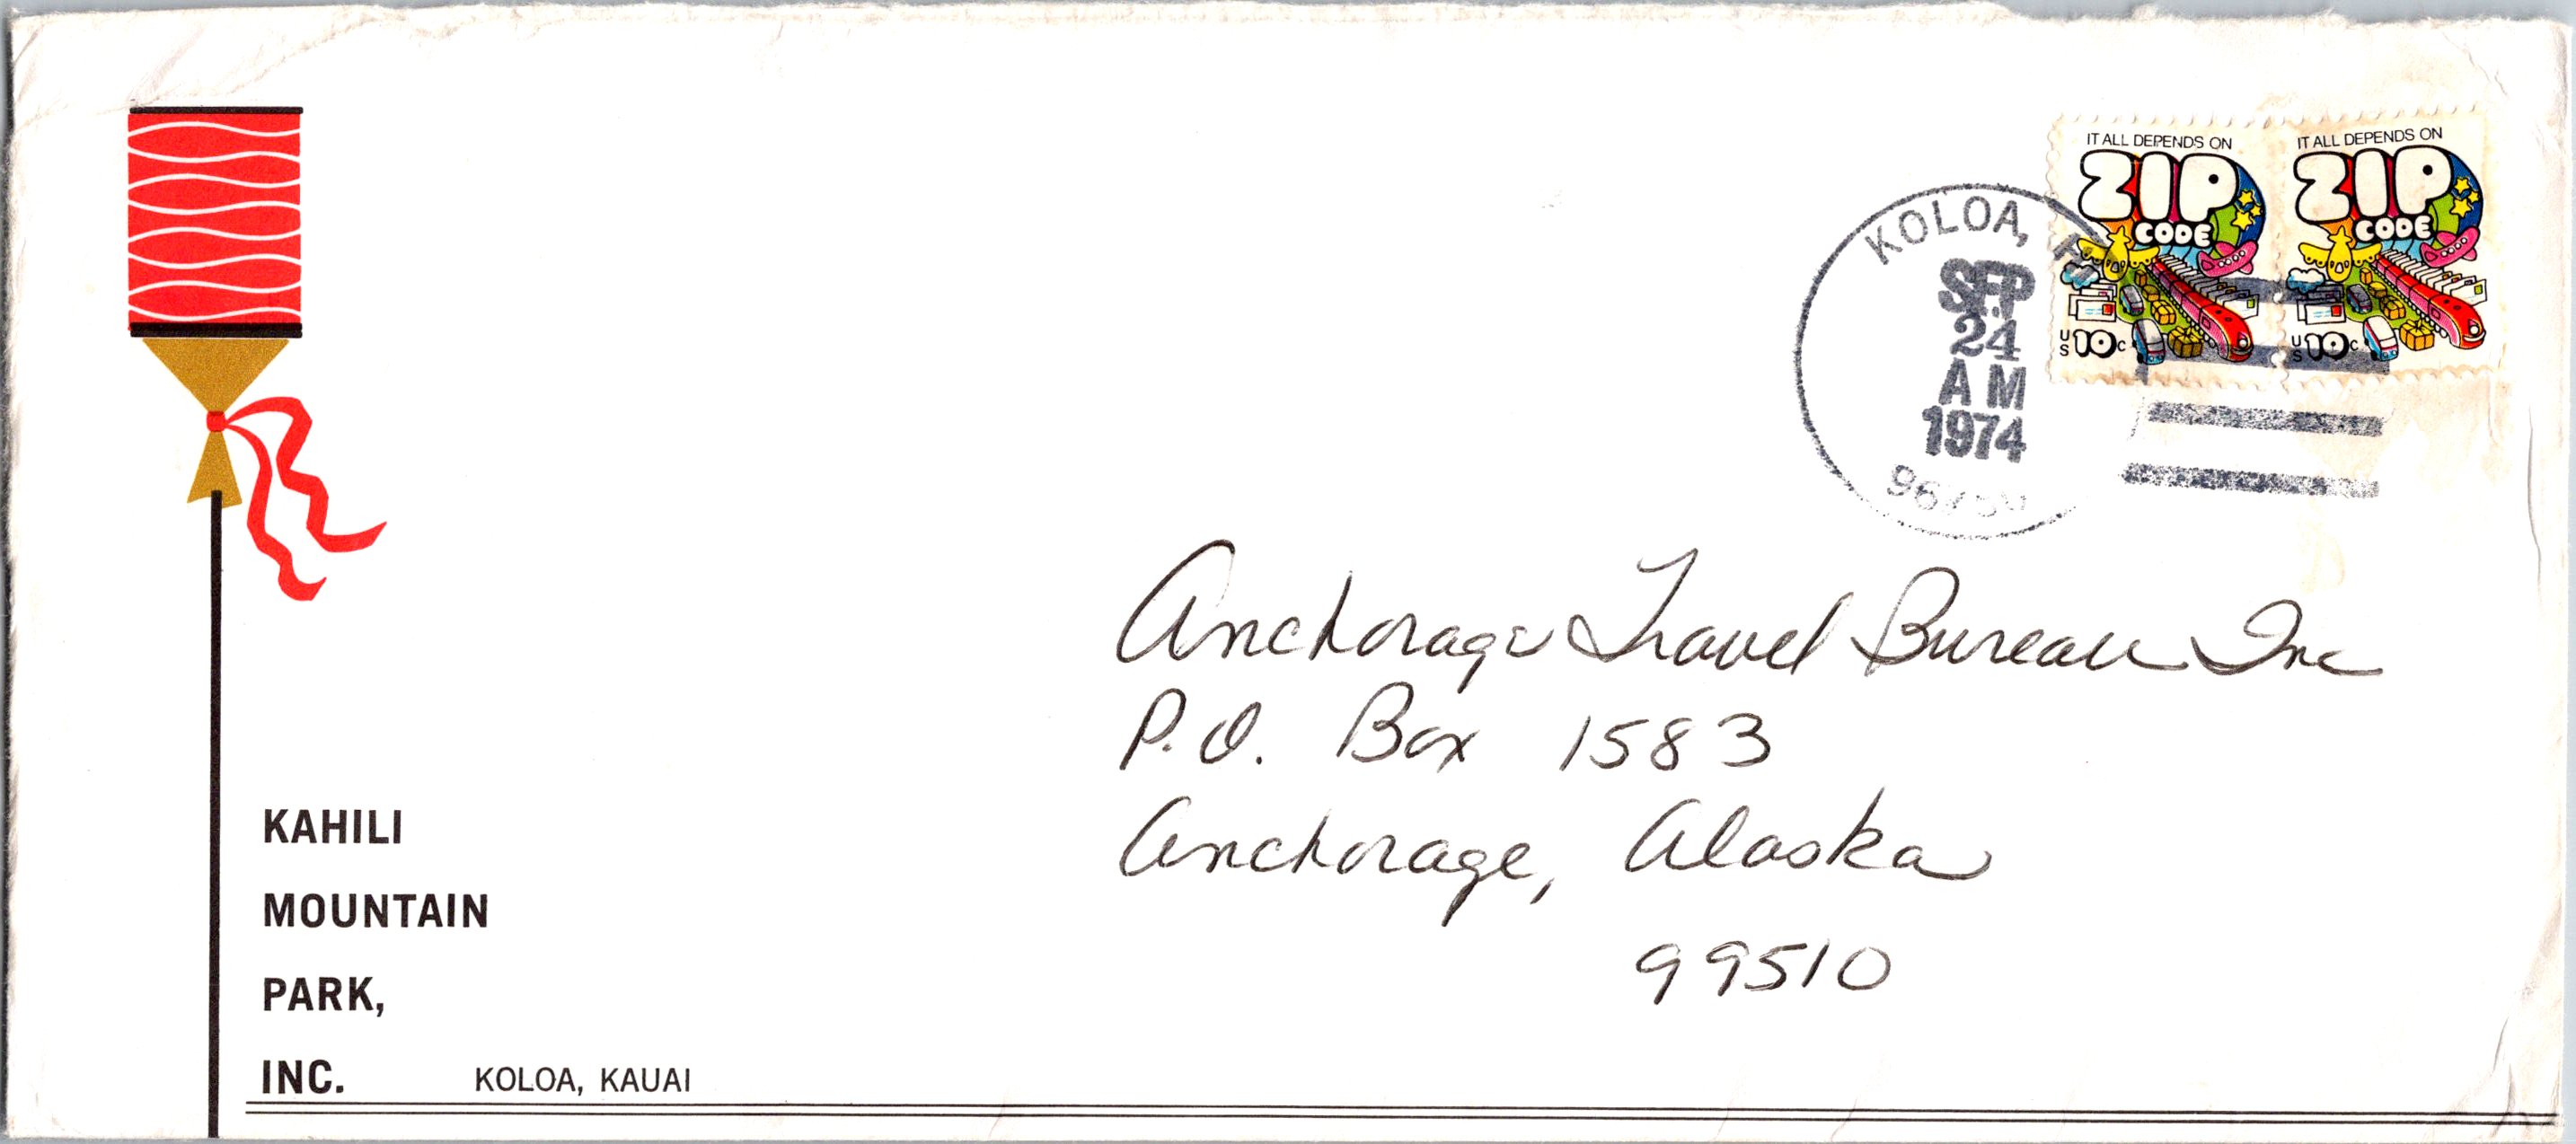 IT ALL DEPENDS ON
ZIP
CODE
US 10c
IT ALL DEPENDS ON
ZIP
CODE
US 10c
KOLOA,
SEP
24
AM
1974
Anchorage Travel Bureau Inc
P.O. Box 1583
Anchorage, Alaska
99510
KAHILI
MOUNTAIN
PARK,
INC. KOLOA, KAUAI